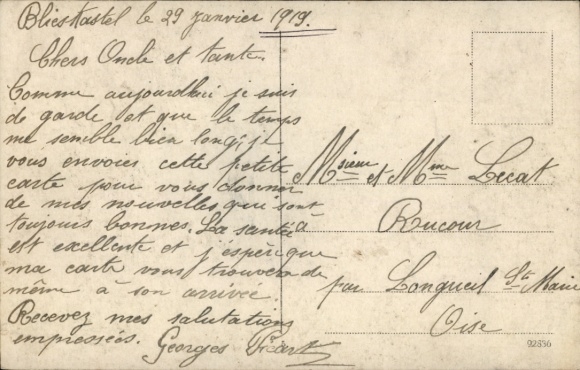 Blieskastel le 29 janvier 1919.
Chers Oncle et tante.
Comme aujourdhui je suis
de garde et que le temps
me semble bien long, je
vous envoies cette petite
carte pour vous donner
de mes nouvelles qui sont
toujours bonnes. La santée
est excellente et j'espère que
ma carte vous trouvera de
même à son arrivée.
Recevez mes salutations
empressées.
Georges
Msieur et Mme Lecat
à
Rucour
par Longueil Ste Marie
Oise
92856